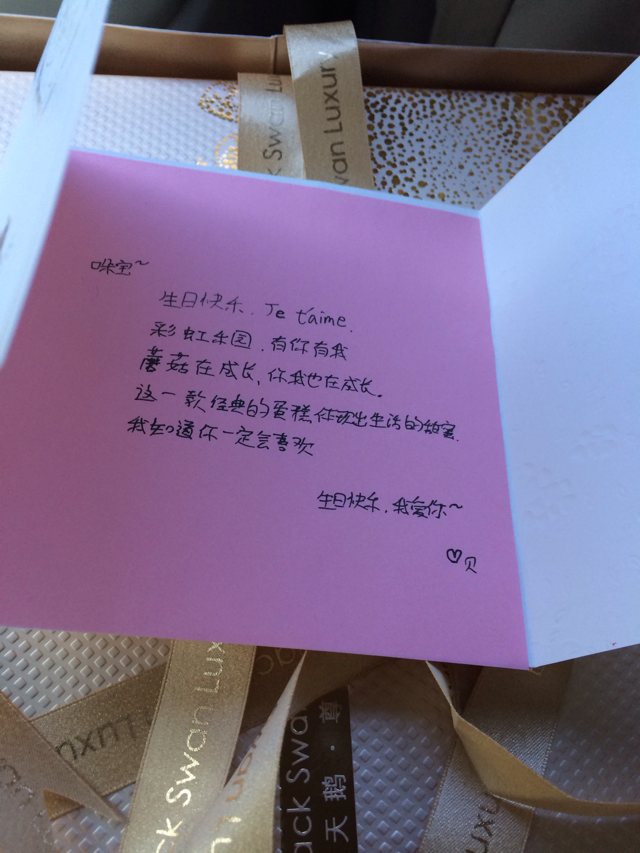 ck Swan Luxury
wan Luxury
哚宝~
生日快乐. Je t'aime.
彩虹乐园,有你有我
蘑菇在成长,你我也在成长。
这一款经典的蛋糕体现出生活的甜蜜.
我知道你一定会喜欢
生日快乐,我爱你~
♡贝
ck Swan Lux
ack Swa
天鹅·尊
Luxu